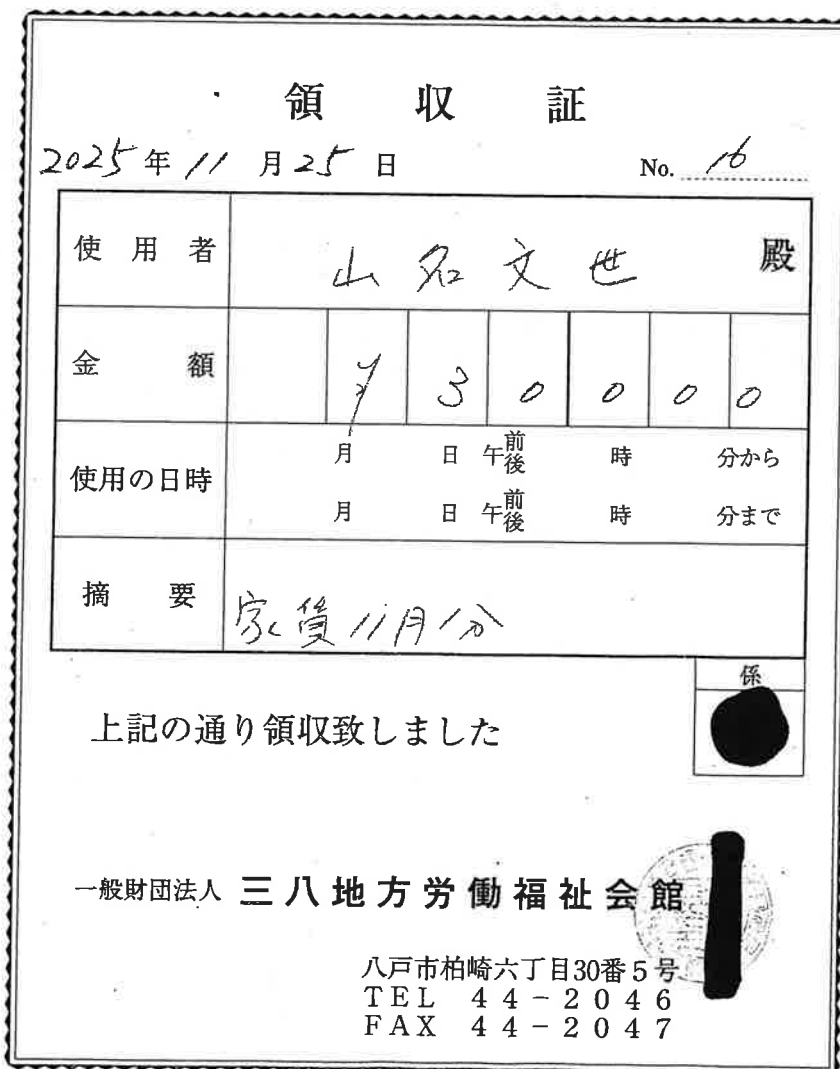 領収証
2025年11月25日 No. 16
使用者 山名文世 殿
金額 ¥30000
使用の日時 月 日 午前後 時 分から
月 日 午前後 時 分まで
摘要 家賃11月分
係
上記の通り領収致しました
一般財団法人 三八地方労働福祉会館
八戸市柏崎六丁目30番5号
TEL 44-2046
FAX 44-2047